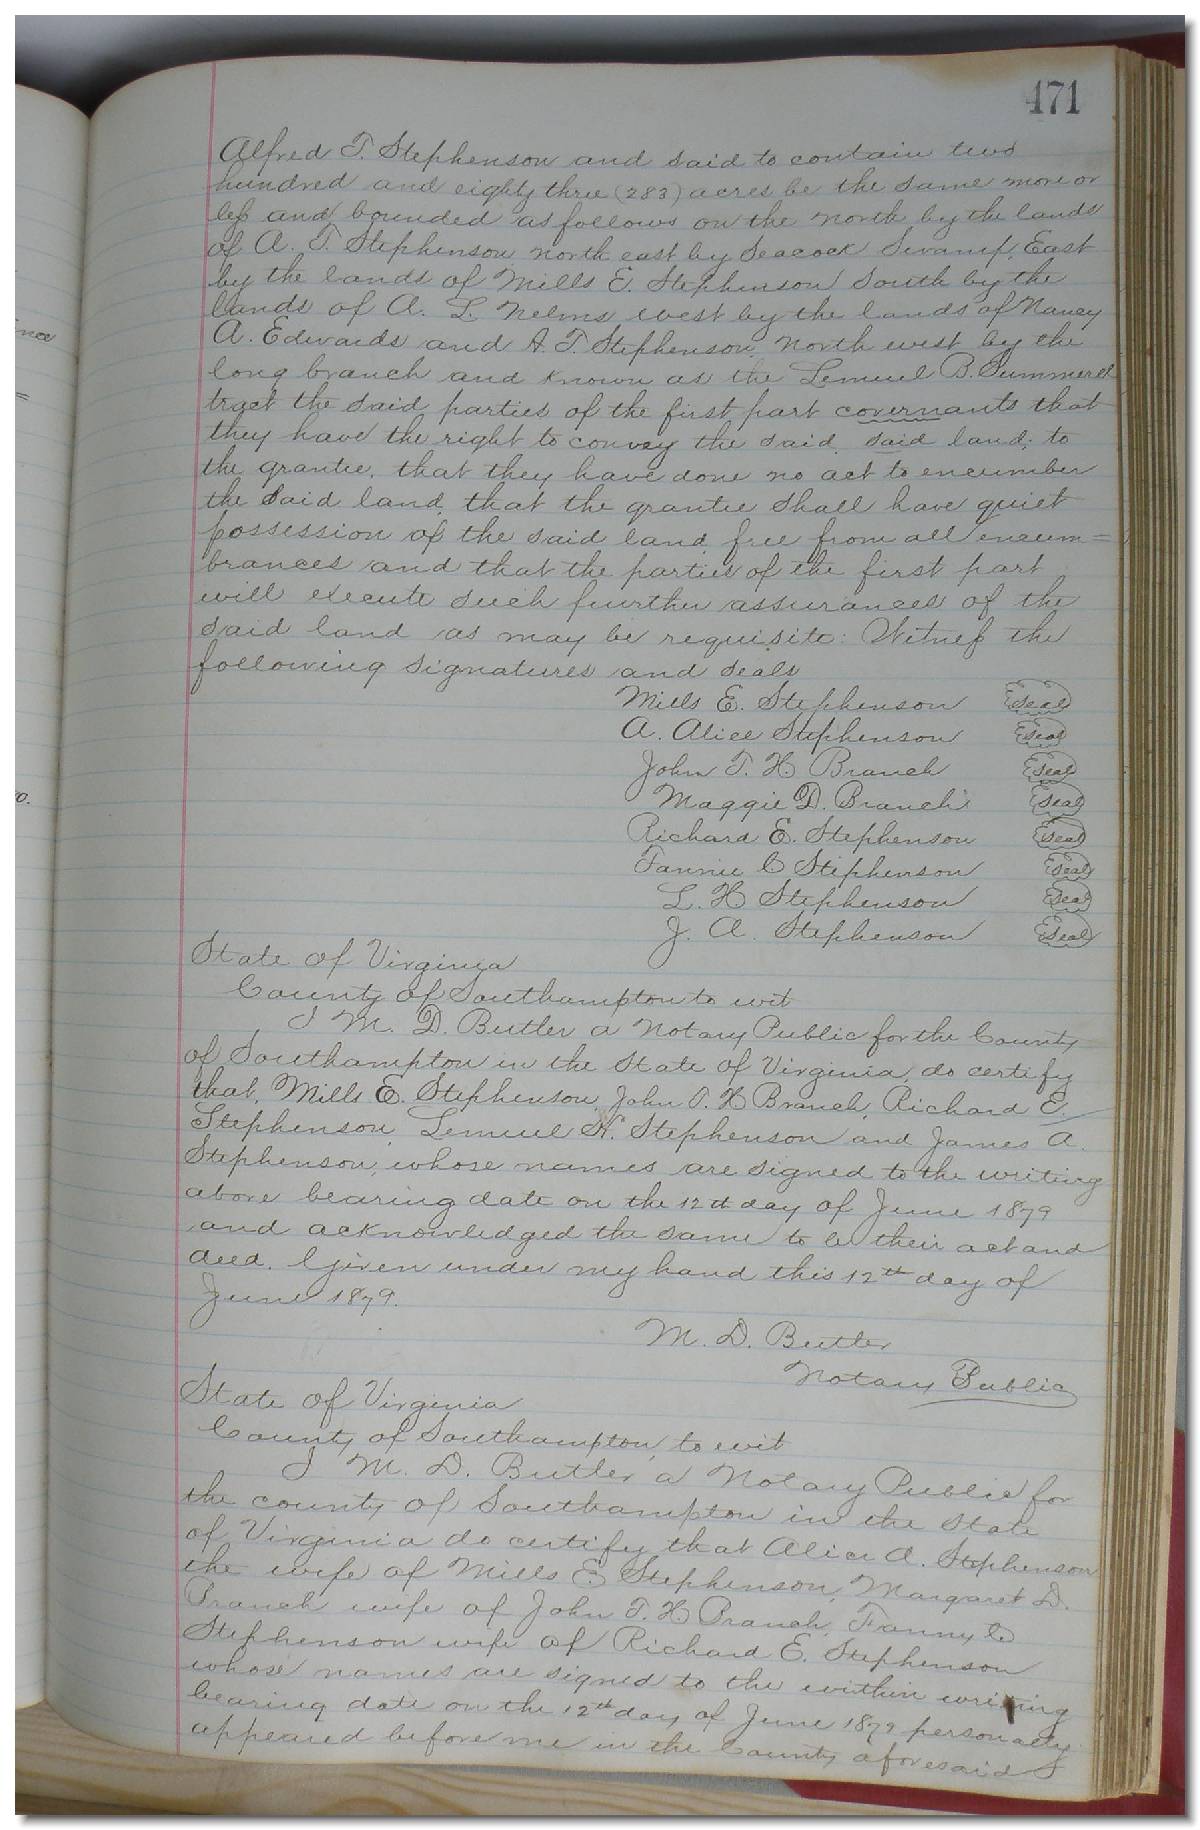 471
Alfred T. Stephenson and said to contain two
hundred and eighty three (283) acres be the same more or
less and bounded as follows on the north by the lands
of A. T. Stephenson north east by Seacock Swamp, East
by the lands of Mills E. Stephenson South by the
lands of A. L. Nelms west by the lands of Nancy
A. Edwards and A. T. Stephenson, North west by the
long branch and known as the Lemuel B. Summerel
tract the said parties of the first part covernants that
they have the right to convey the said, said land; to
the grantee, that they have done no act to encumber
the said land, that the grantee shall have quiet
possession of the said land free from all encum=
brances and that the parties of the first part
will execute such further assurances of the
said land as may be requisite: Witness the
following signatures and seals
Mills E. Stephenson Seal
A. Alice Stephenson Seal
John T. H Branch Seal
Maggie D. Branch Seal
Richard E. Stephenson Seal
Fannie C Stephenson Seal
L. H Stephenson Seal
J. A. Stephenson Seal
State of Virginia
County of Southampton to wit
I M. D. Butler a Notary Public for the County
of Southampton in the State of Virginia, do certify
that, Mills E. Stephenson, John T. H Branch, Richard E.
Stephenson, Lemuel H. Stephenson and James A.
Stephenson, whose names are signed to the writing
above bearing date on the 12th day of June 1879
and acknowledged the same to be their act and
deed. Given under my hand this 12th day of
June 1879.
M. D. Butler
Notary Public
State of Virginia
County of Southampton, to wit
I M. D. Butler a Notary Public for
the county of Southampton in the State
of Virginia do certify that Alice A. Stephenson
the wife of Mills E Stephenson, Margaret D.
Branch wife of John T. H Branch, Fanny C
Stephenson wife of Richard E. Stephenson
whose names are signed to the within writing
bearing date on the 12th day of June 1879 personally
appeared before me in the County aforesaid &